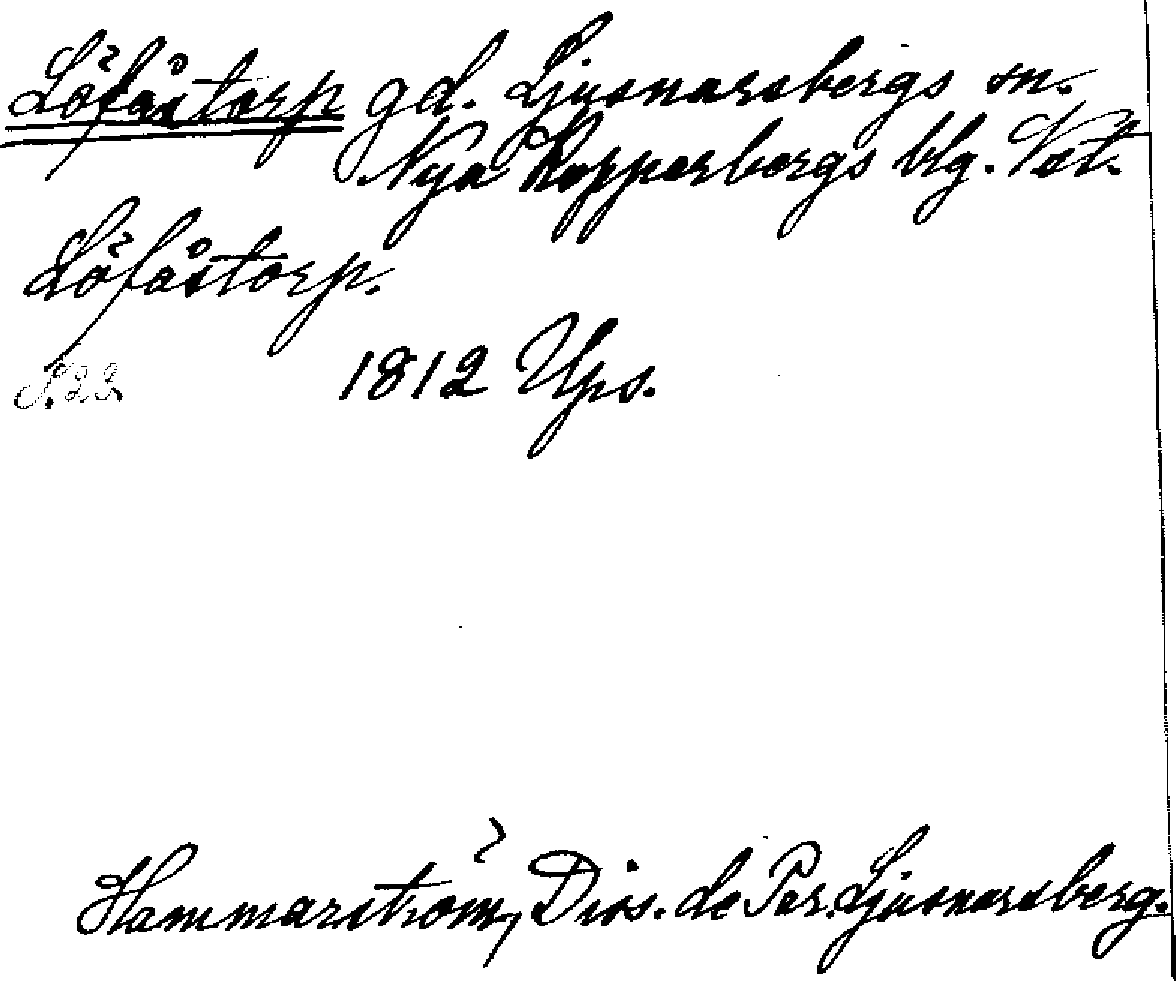 Löfåstorp gd. Ljusnarsbergs sn.
Nya Kopparbergs blg. Vst.
Löfåstorp.
S. 22 1812 Ups.
Hammarström, Diss. de Par. Ljusnarsberg.